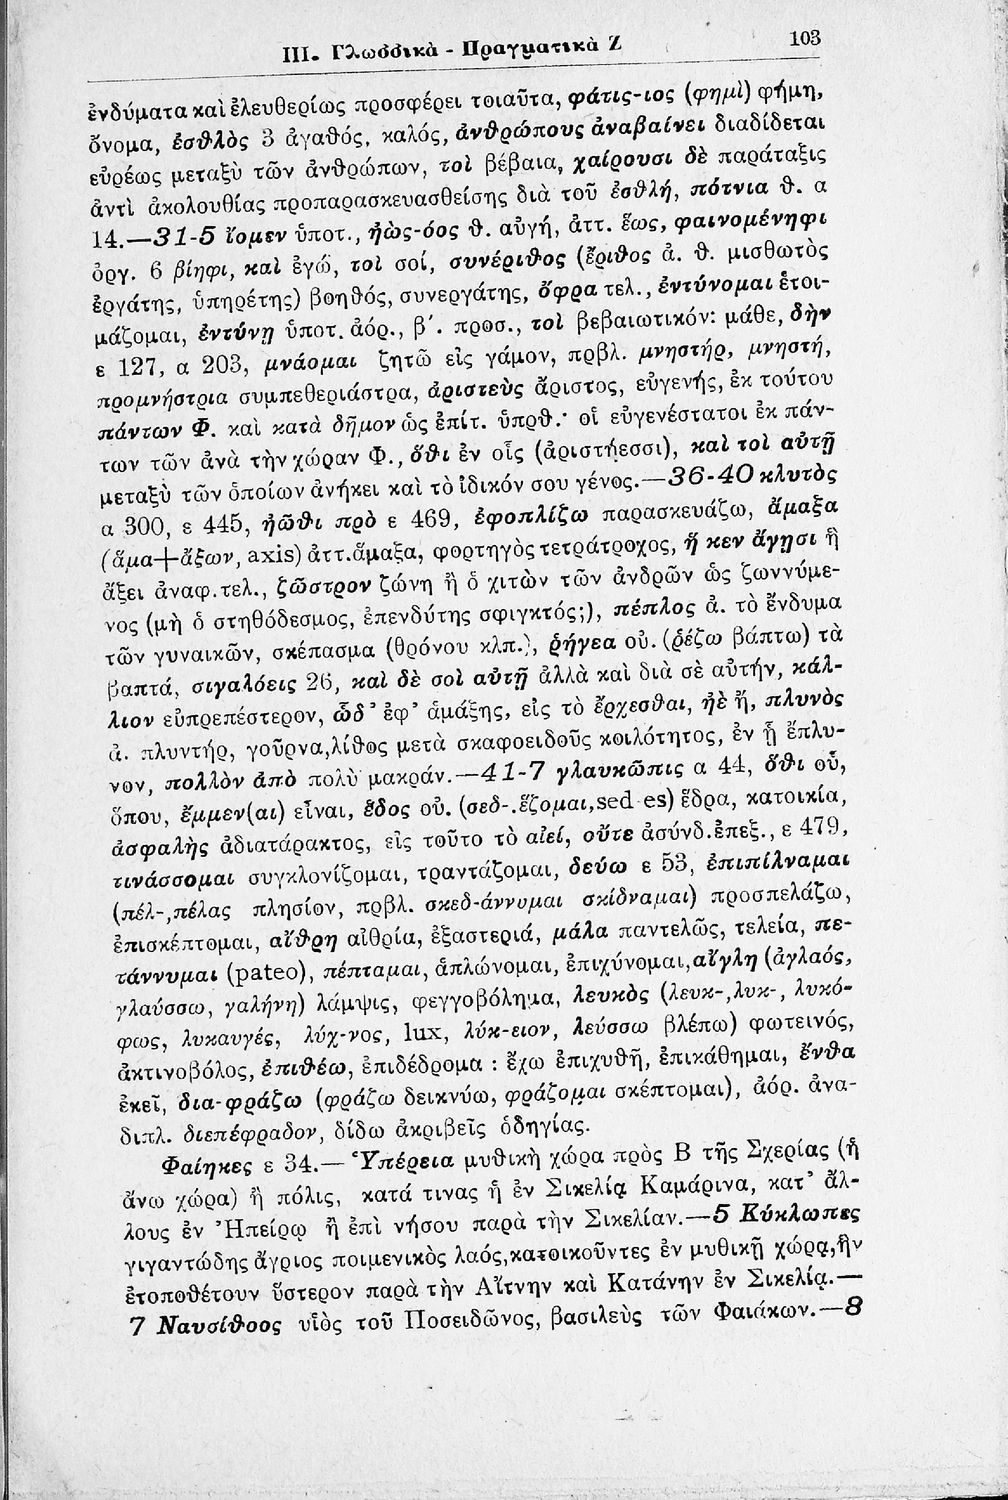 III. Γλωσσικὰ - Πραγματικὰ Ζ 103
ἐνδύματα καὶ ἐλευθερίως προσφέρει τοιαῦτα, φάτις-ιος (φημὶ) φήμη,
ὄνομα, ἐσθλὸς 3 ἀγαθός, καλός, ἀνθρώπους ἀναβαίνει διαδίδεται
εὐρέως μεταξὺ τῶν ἀνθρώπων, τοὶ βέβαια, χαίρουσι δὲ παράταξις
ἀντὶ ἀκολουθίας προπαρασκευασθείσης διὰ τοῦ ἐσθλή, πότνια θ. α
14.—31-5 ἴομεν ὑποτ., ἠὼς-όος θ. αὐγή, ἀττ. ἕως, φαινομένηφι
ὀργ. 6 βίηφι, καὶ ἐγώ, τοὶ σοί, συνέριθος (ἔριθος ἀ. θ. μισθωτὸς
ἐργάτης, ὑπηρέτης) βοηθός, συνεργάτης, ὄφρα τελ., ἐντύνομαι ἑτοι-
μάζομαι, ἐντύνῃ ὑποτ. ἀόρ., β΄. προσ., τοὶ βεβαιωτικόν: μάθε, δὴν
ε 127, α 203, μνάομαι ζητῶ εἰς γάμον, πρβλ. μνηστήρ, μνηστή,
προμνήστρια συμπεθεριάστρα, ἀριστεὺς ἄριστος, εὐγενής, ἐκ τούτου
πάντων Φ. καὶ κατὰ δῆμον ὡς ἐπίτ. ὑπρθ.· οἱ εὐγενέστατοι ἐκ πάν-
των τῶν ἀνὰ τὴν χώραν Φ., ὅθι ἐν οἷς (ἀριστήεσσι), καὶ τοὶ αὐτῇ
μεταξὺ τῶν ὁποίων ἀνήκει καὶ τὸ ἰδικόν σου γένος.—36-40 κλυτὸς
α 300, ε 445, ἠῶθι πρὸ ε 469, ἐφοπλίζω παρασκευάζω, ἄμαξα
(ἅμα+ἄξων, axis) ἀττ. ἅμαξα, φορτηγὸς τετράτροχος, ἥ κεν ἄγῃσι ἣ
ἄξει ἀναφ. τελ., ζῶστρον ζώνη ἢ ὁ χιτὼν τῶν ἀνδρῶν ὡς ζωννύμε-
νος (μὴ ὁ στηθόδεσμος, ἐπενδύτης σφιγκτός;), πέπλος ἀ. τὸ ἔνδυμα
τῶν γυναικῶν, σκέπασμα (θρόνου κλπ.), ῥήγεα οὐ. (ῥέζω βάπτω) τὰ
βαπτά, σιγαλόεις 26, καὶ δὲ σοὶ αὐτῇ ἀλλὰ καὶ διὰ σὲ αὐτήν, κάλ-
λιον εὐπρεπέστερον, ὧδ’ ἐφ’ ἁμάξης, εἰς τὸ ἔρχεσθαι, ἠὲ ἤ, πλυνὸς
ἀ. πλυντήρ, γοῦρνα, λίθος μετὰ σκαφοειδοῦς κοιλότητος, ἐν ᾗ ἔπλυ-
νον, πολλὸν ἀπὸ πολὺ μακράν.—41-7 γλαυκῶπις α 44, ὅθι οὗ,
ὅπου, ἔμμεν(αι) εἶναι, ἕδος οὐ. (σεδ-.ἕζομαι, sed es) ἕδρα, κατοικία,
ἀσφαλὴς ἀδιατάρακτος, εἰς τοῦτο τὸ αἰεί, οὔτε ἀσύνδ. ἐπεξ., ε 479,
τινάσσομαι συγκλονίζομαι, τραντάζομαι, δεύω ε 53, ἐπιπίλναμαι
(πέλ-, πέλας πλησίον, πρβλ. σκεδ-άννυμαι σκίδναμαι) προσπελάζω,
ἐπισκέπτομαι, αἴθρη αἰθρία, ἐξαστεριά, μάλα παντελῶς, τελεία, πε-
τάννυμαι (pateo), πέπταμαι, ἁπλώνομαι, ἐπιχύνομαι, αἴγλη (ἀγλαός,
γλαύσσω, γαλήνη) λάμψις, φεγγοβόλημα, λευκὸς (λευκ-, λυκ-, λυκό-
φως, λυκαυγές, λύχ-νος, lux, λύκ-ειον, λεύσσω βλέπω) φωτεινός,
ἀκτινοβόλος, ἐπιθέω, ἐπιδέδρομα : ἔχω ἐπιχυθῆ, ἐπικάθημαι, ἔνθα
ἐκεῖ, δια-φράζω (φράζω δεικνύω, φράζομαι σκέπτομαι), ἀόρ. ἀνα-
διπλ. διεπέφραδον, δίδω ἀκριβεῖς ὁδηγίας.
Φαίηκες ε 34.— Ὑπέρεια μυθικὴ χώρα πρὸς Β τῆς Σχερίας (ἡ
ἄνω χώρα) ἢ πόλις, κατά τινας ἡ ἐν Σικελίᾳ Καμάρινα, κατ’ ἄλ-
λους ἐν Ἠπείρῳ ἢ ἐπὶ νήσου παρὰ τὴν Σικελίαν.—5 Κύκλωπες
γιγαντώδης ἄγριος ποιμενικὸς λαός, κατοικοῦντες ἐν μυθικῇ χώρᾳ, ἣν
ἐτοποθέτουν ὕστερον παρὰ τὴν Αἴτνην καὶ Κατάνην ἐν Σικελίᾳ.—
7 Ναυσίθοος υἱὸς τοῦ Ποσειδῶνος, βασιλεὺς τῶν Φαιάκων.—8